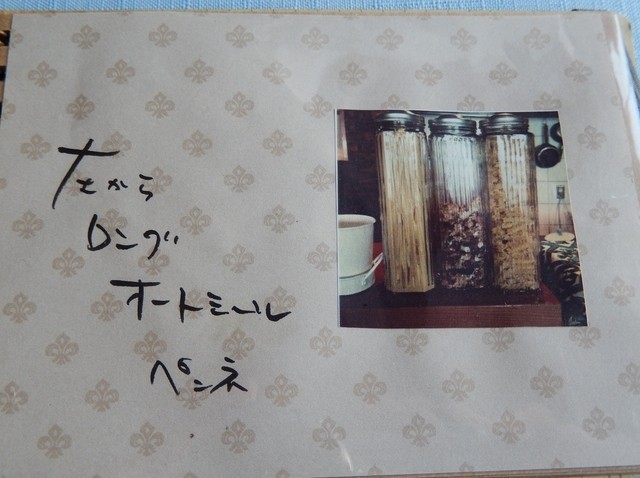 左から
ロング
オートミール
ペンネ